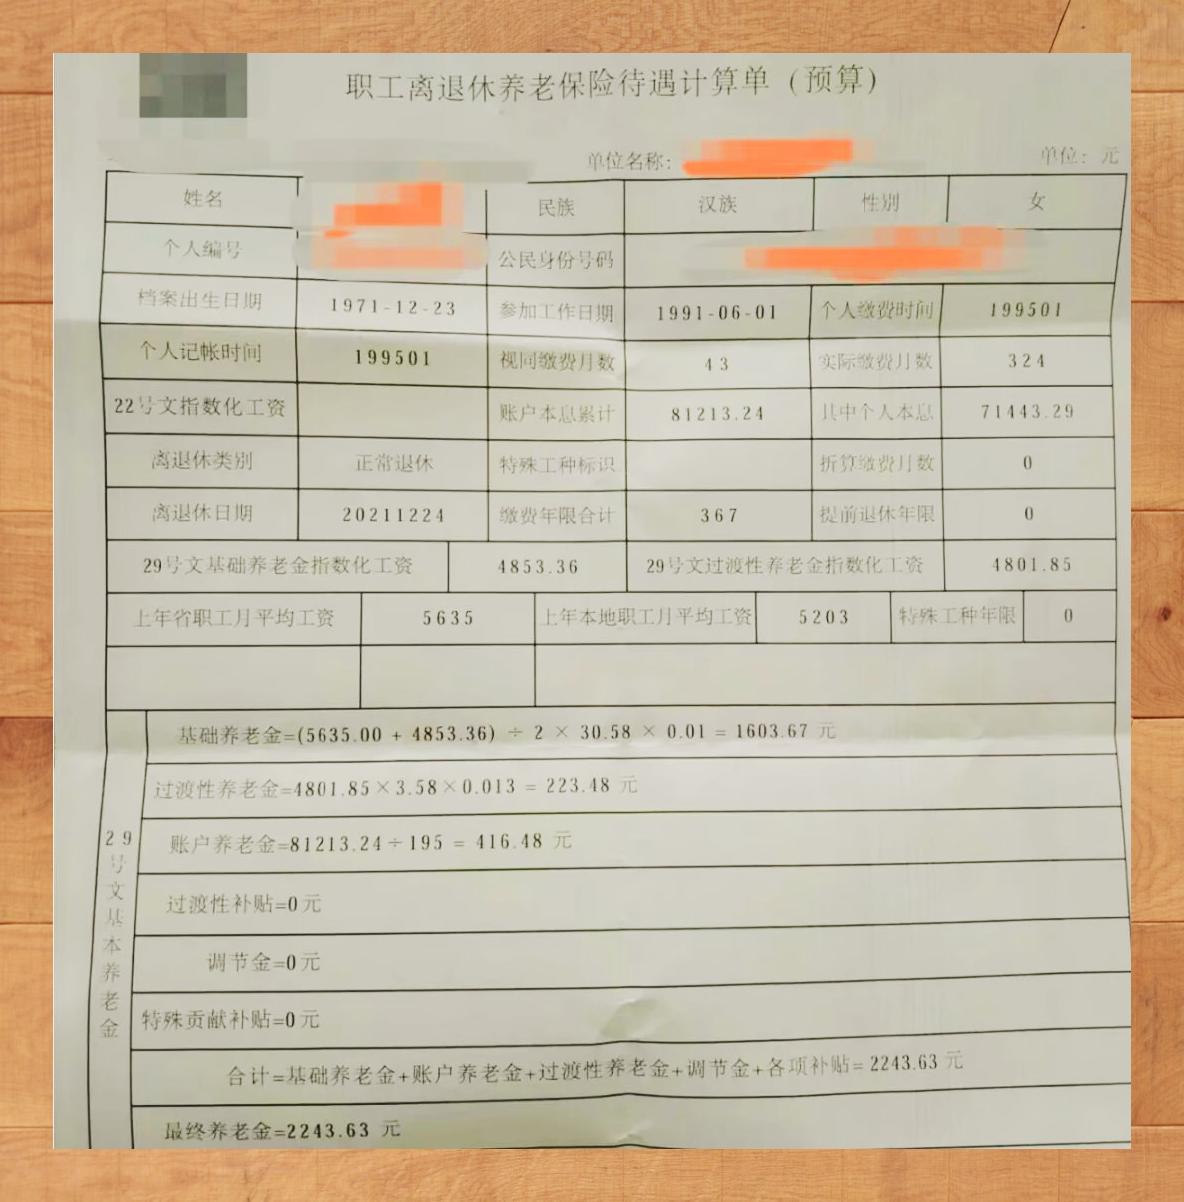 职工离退休养老保险待遇计算单（预算）
单位名称： 单位：元
姓名 民族 汉族 性别 女
个人编号 公民身份号码
档案出生日期 1971-12-23 参加工作日期 1991-06-01 个人缴费时间 199501
个人记帐时间 199501 视同缴费月数 43 实际缴费月数 324
22号文指数化工资 账户本息累计 81213.24 其中个人本息 71443.29
离退休类别 正常退休 特殊工种标识 折算缴费月数 0
离退休日期 20211224 缴费年限合计 367 提前退休年限 0
29号文基础养老金指数化工资 4853.36 29号文过渡性养老金指数化工资 4801.85
上年省职工月平均工资 5635 上年本地职工月平均工资 5203 特殊工种年限 0
29号文基本养老金
基础养老金=(5635.00 + 4853.36) ÷ 2 × 30.58 × 0.01 = 1603.67 元
过渡性养老金=4801.85×3.58×0.013 = 223.48 元
账户养老金=81213.24÷195 = 416.48 元
过渡性补贴=0元
调节金=0元
特殊贡献补贴=0元
合计=基础养老金+账户养老金+过渡性养老金+调节金+各项补贴=2243.63 元
最终养老金=2243.63 元